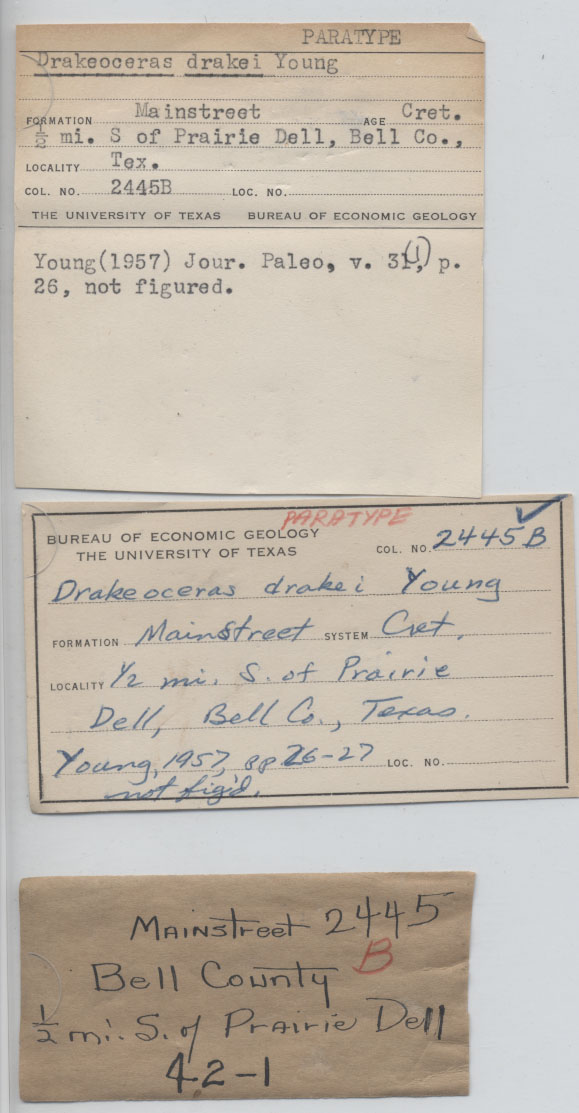 PARATYPE
Drakeoceras drakei Young
FORMATION Mainstreet AGE Cret.
½ mi. S of Prairie Dell, Bell Co.,
LOCALITY Tex.
COL. NO. 2445B LOC. NO.
THE UNIVERSITY OF TEXAS BUREAU OF ECONOMIC GEOLOGY
Young(1957) Jour. Paleo, v. 31(1), p.
26, not figured.
PARATYPE
BUREAU OF ECONOMIC GEOLOGY
THE UNIVERSITY OF TEXAS COL. NO. 2445B
Drakeoceras drakei Young
FORMATION Mainstreet SYSTEM Cret.
LOCALITY ½ mi. S. of Prairie
Dell, Bell Co., Texas.
Young, 1957, pp 26-27 LOC. NO.
not fig'd.
MAINstreet 2445
B
Bell County
½ mi. S. of PRAIRIE Dell
42-1